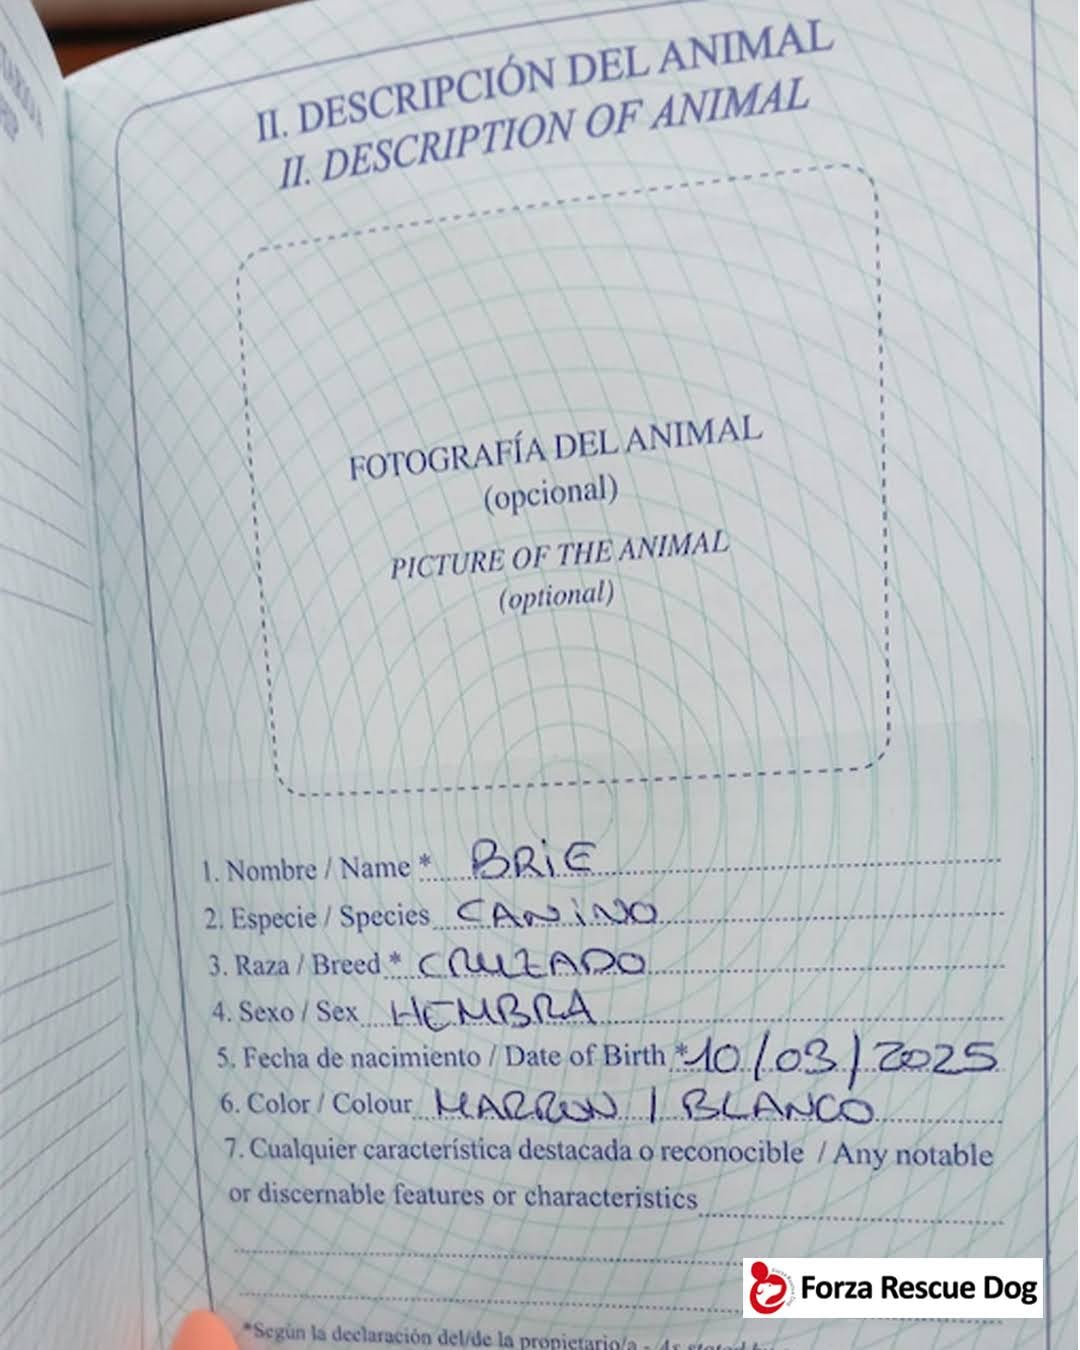 II. DESCRIPCIÓN DEL ANIMAL
II. DESCRIPTION OF ANIMAL
FOTOGRAFÍA DEL ANIMAL
(opcional)
PICTURE OF THE ANIMAL
(optional)
1. Nombre / Name * BRIE
2. Especie / Species CANINO
3. Raza / Breed * CRUZADO
4. Sexo / Sex HEMBRA
5. Fecha de nacimiento / Date of Birth * 10/03/2025
6. Color / Colour MARRON / BLANCO
7. Cualquier característica destacada o reconocible / Any notable
or discernable features or characteristics
Forza Rescue Dog
*Según la declaración del/de la propietario/a - As stated by